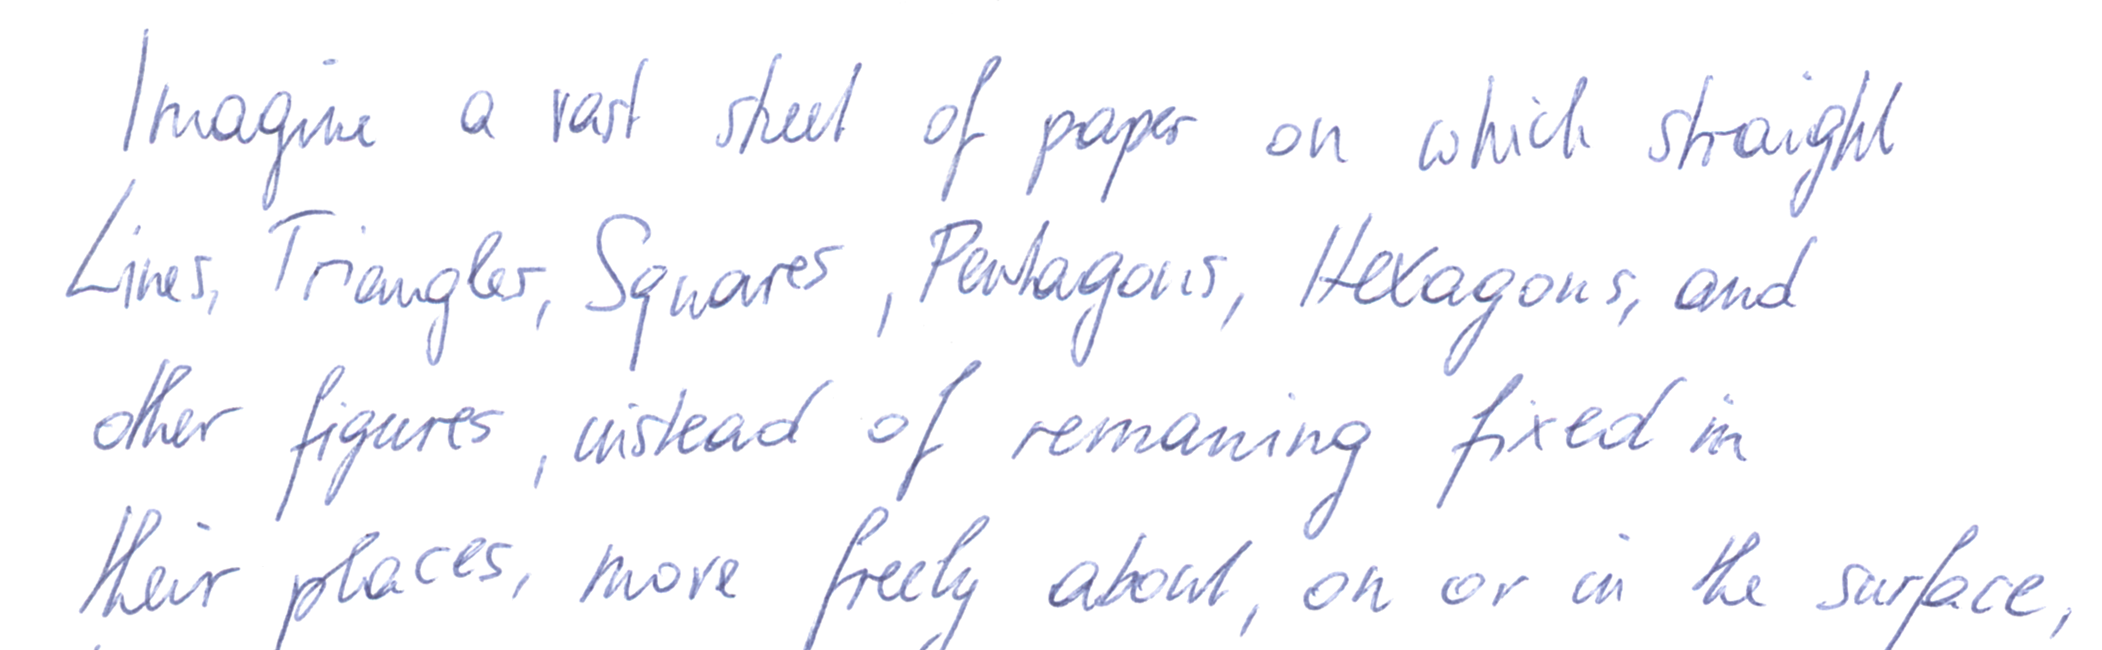 Imagine a vast sheet of paper on which straight
Lines, Triangles, Squares, Pentagons, Hexagons, and
other figures, instead of remaning fixed in
their places, move freely about, on or in the surface,